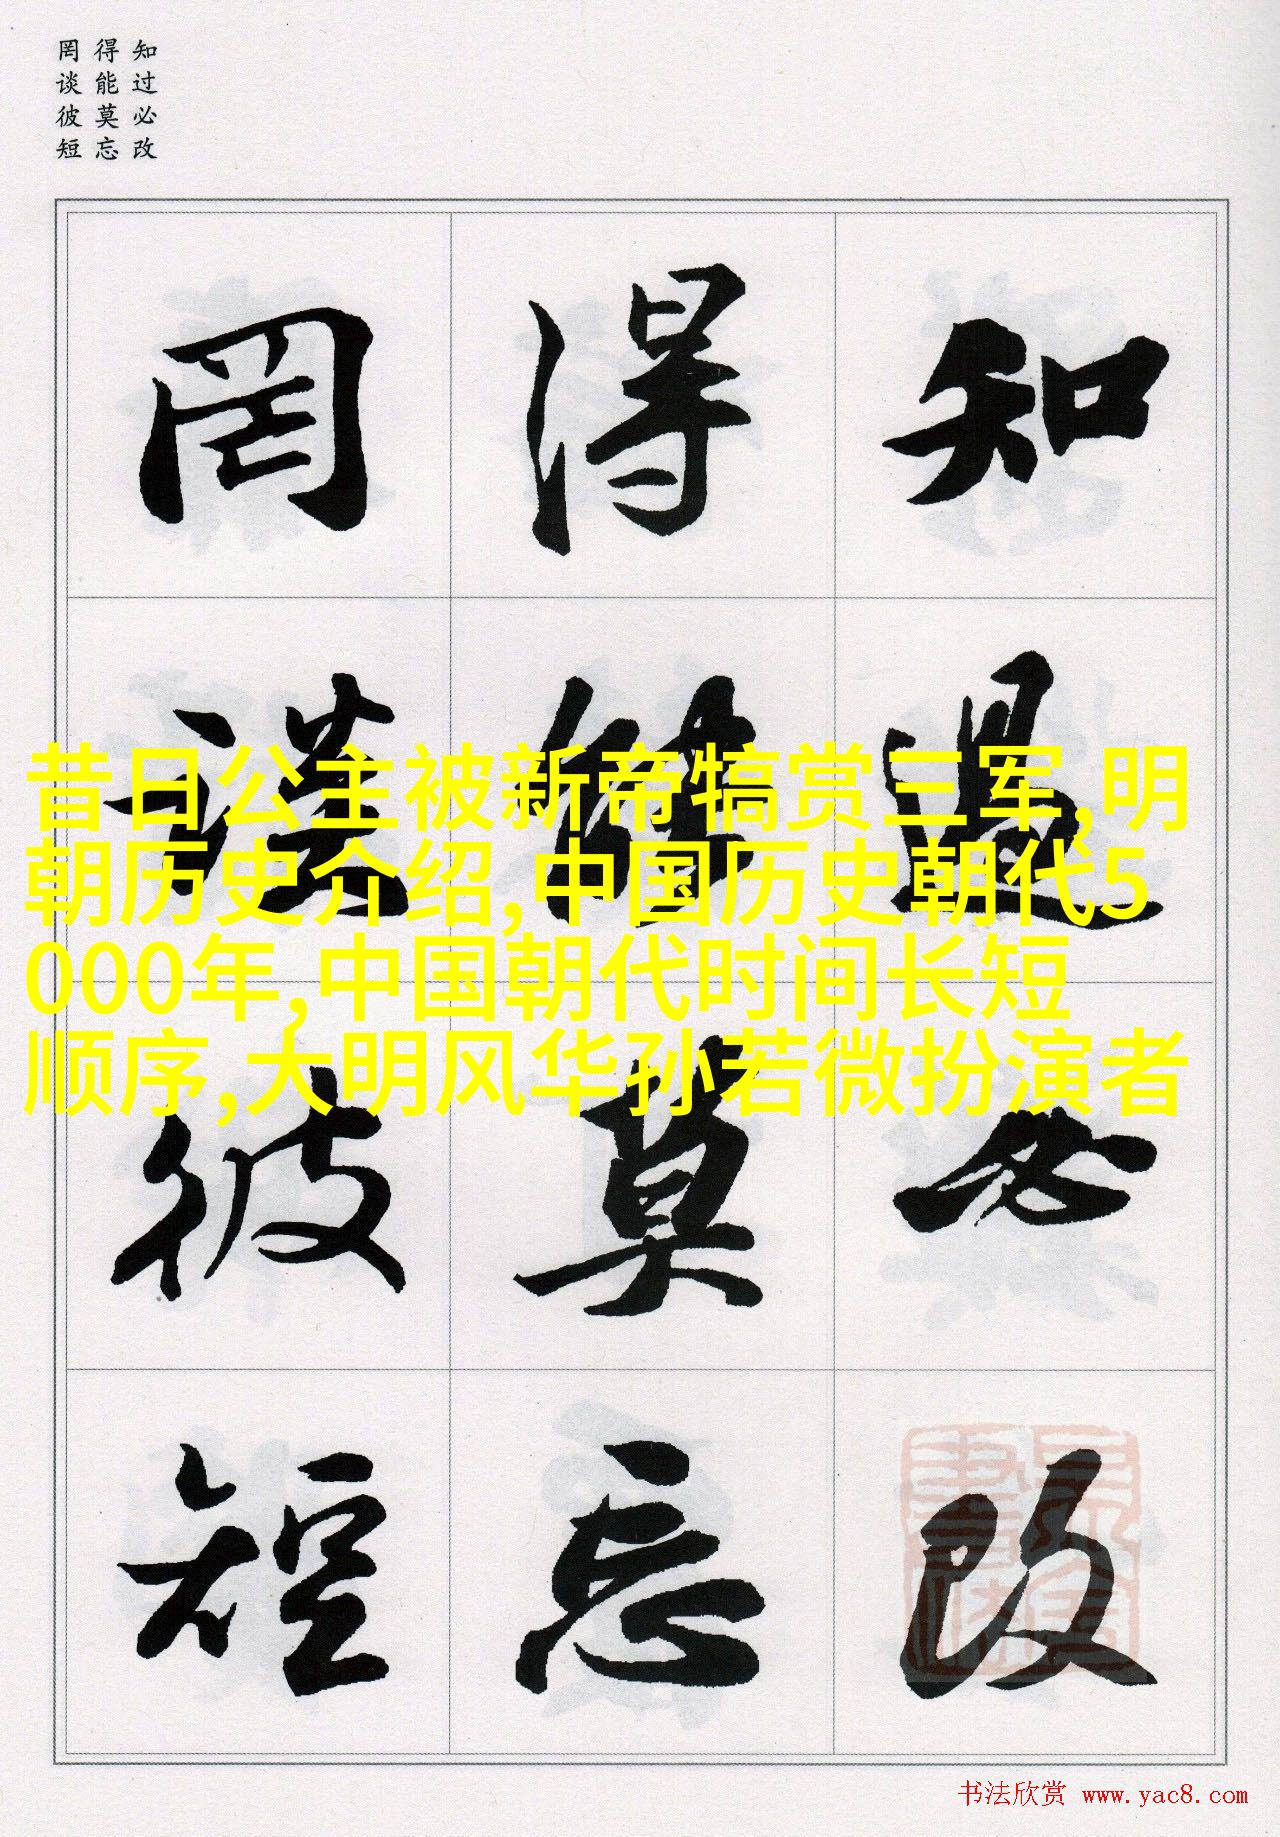 知过必改
得能莫忘
罔谈彼短
知過必改
得能莫忘
罔談彼短
昔日公主被新帝犒赏三军,明
朝历史介绍,中国历史朝代5
000年,中国朝代时间长短
顺序,大明风华孙若微扮演者
书法欣赏 www.yac8.com